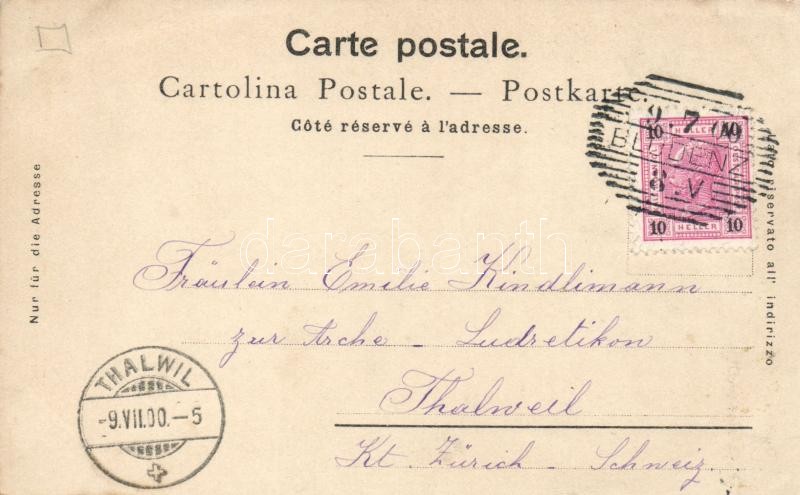 Carte postale.
Cartolina Postale. — Postkarte.
Côté réservé à l'adresse.
Nur für die Adresse
Lato riservato all' indirizzo
9. 7 00
BLUDENZ
8. V
10 HELLER 10
10 HELLER 10
darabanth
Fräulein Emilie Kindlimann
zur Arche - Ludretikon
Thalweil
Kt. Zürich - Schweiz.
THALWIL
-9.VII.00.-5